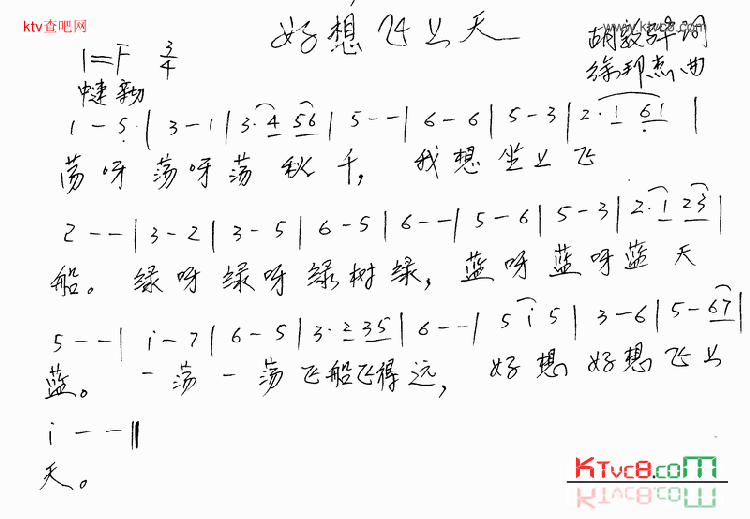 ktv查吧网
www.ktvc8.com
好想飞上天
1=F 3/4
胡敦骅词
中速 亲切
徐邦杰曲
1 - 5 | 3 - 1 | 3 · 4 5 6 | 5 - - | 6 - 6 | 5 - 3 | 2 · 1 6 1 |
荡呀荡呀荡秋千, 我想坐上飞
2 - - | 3 - 2 | 3 - 5 | 6 - 5 | 6 - - | 5 - 6 | 5 - 3 | 2 · 1 2 3 |
船。绿呀绿呀绿树绿, 蓝呀蓝呀蓝天
5 - - | i - 7 | 6 - 5 | 3 · 2 3 5 | 6 - - | 5 i 5 | 3 - 6 | 5 - 6 7 |
蓝。一荡一荡飞船飞得远, 好想好想飞上
i - - ‖
天。
KTVC8.COM